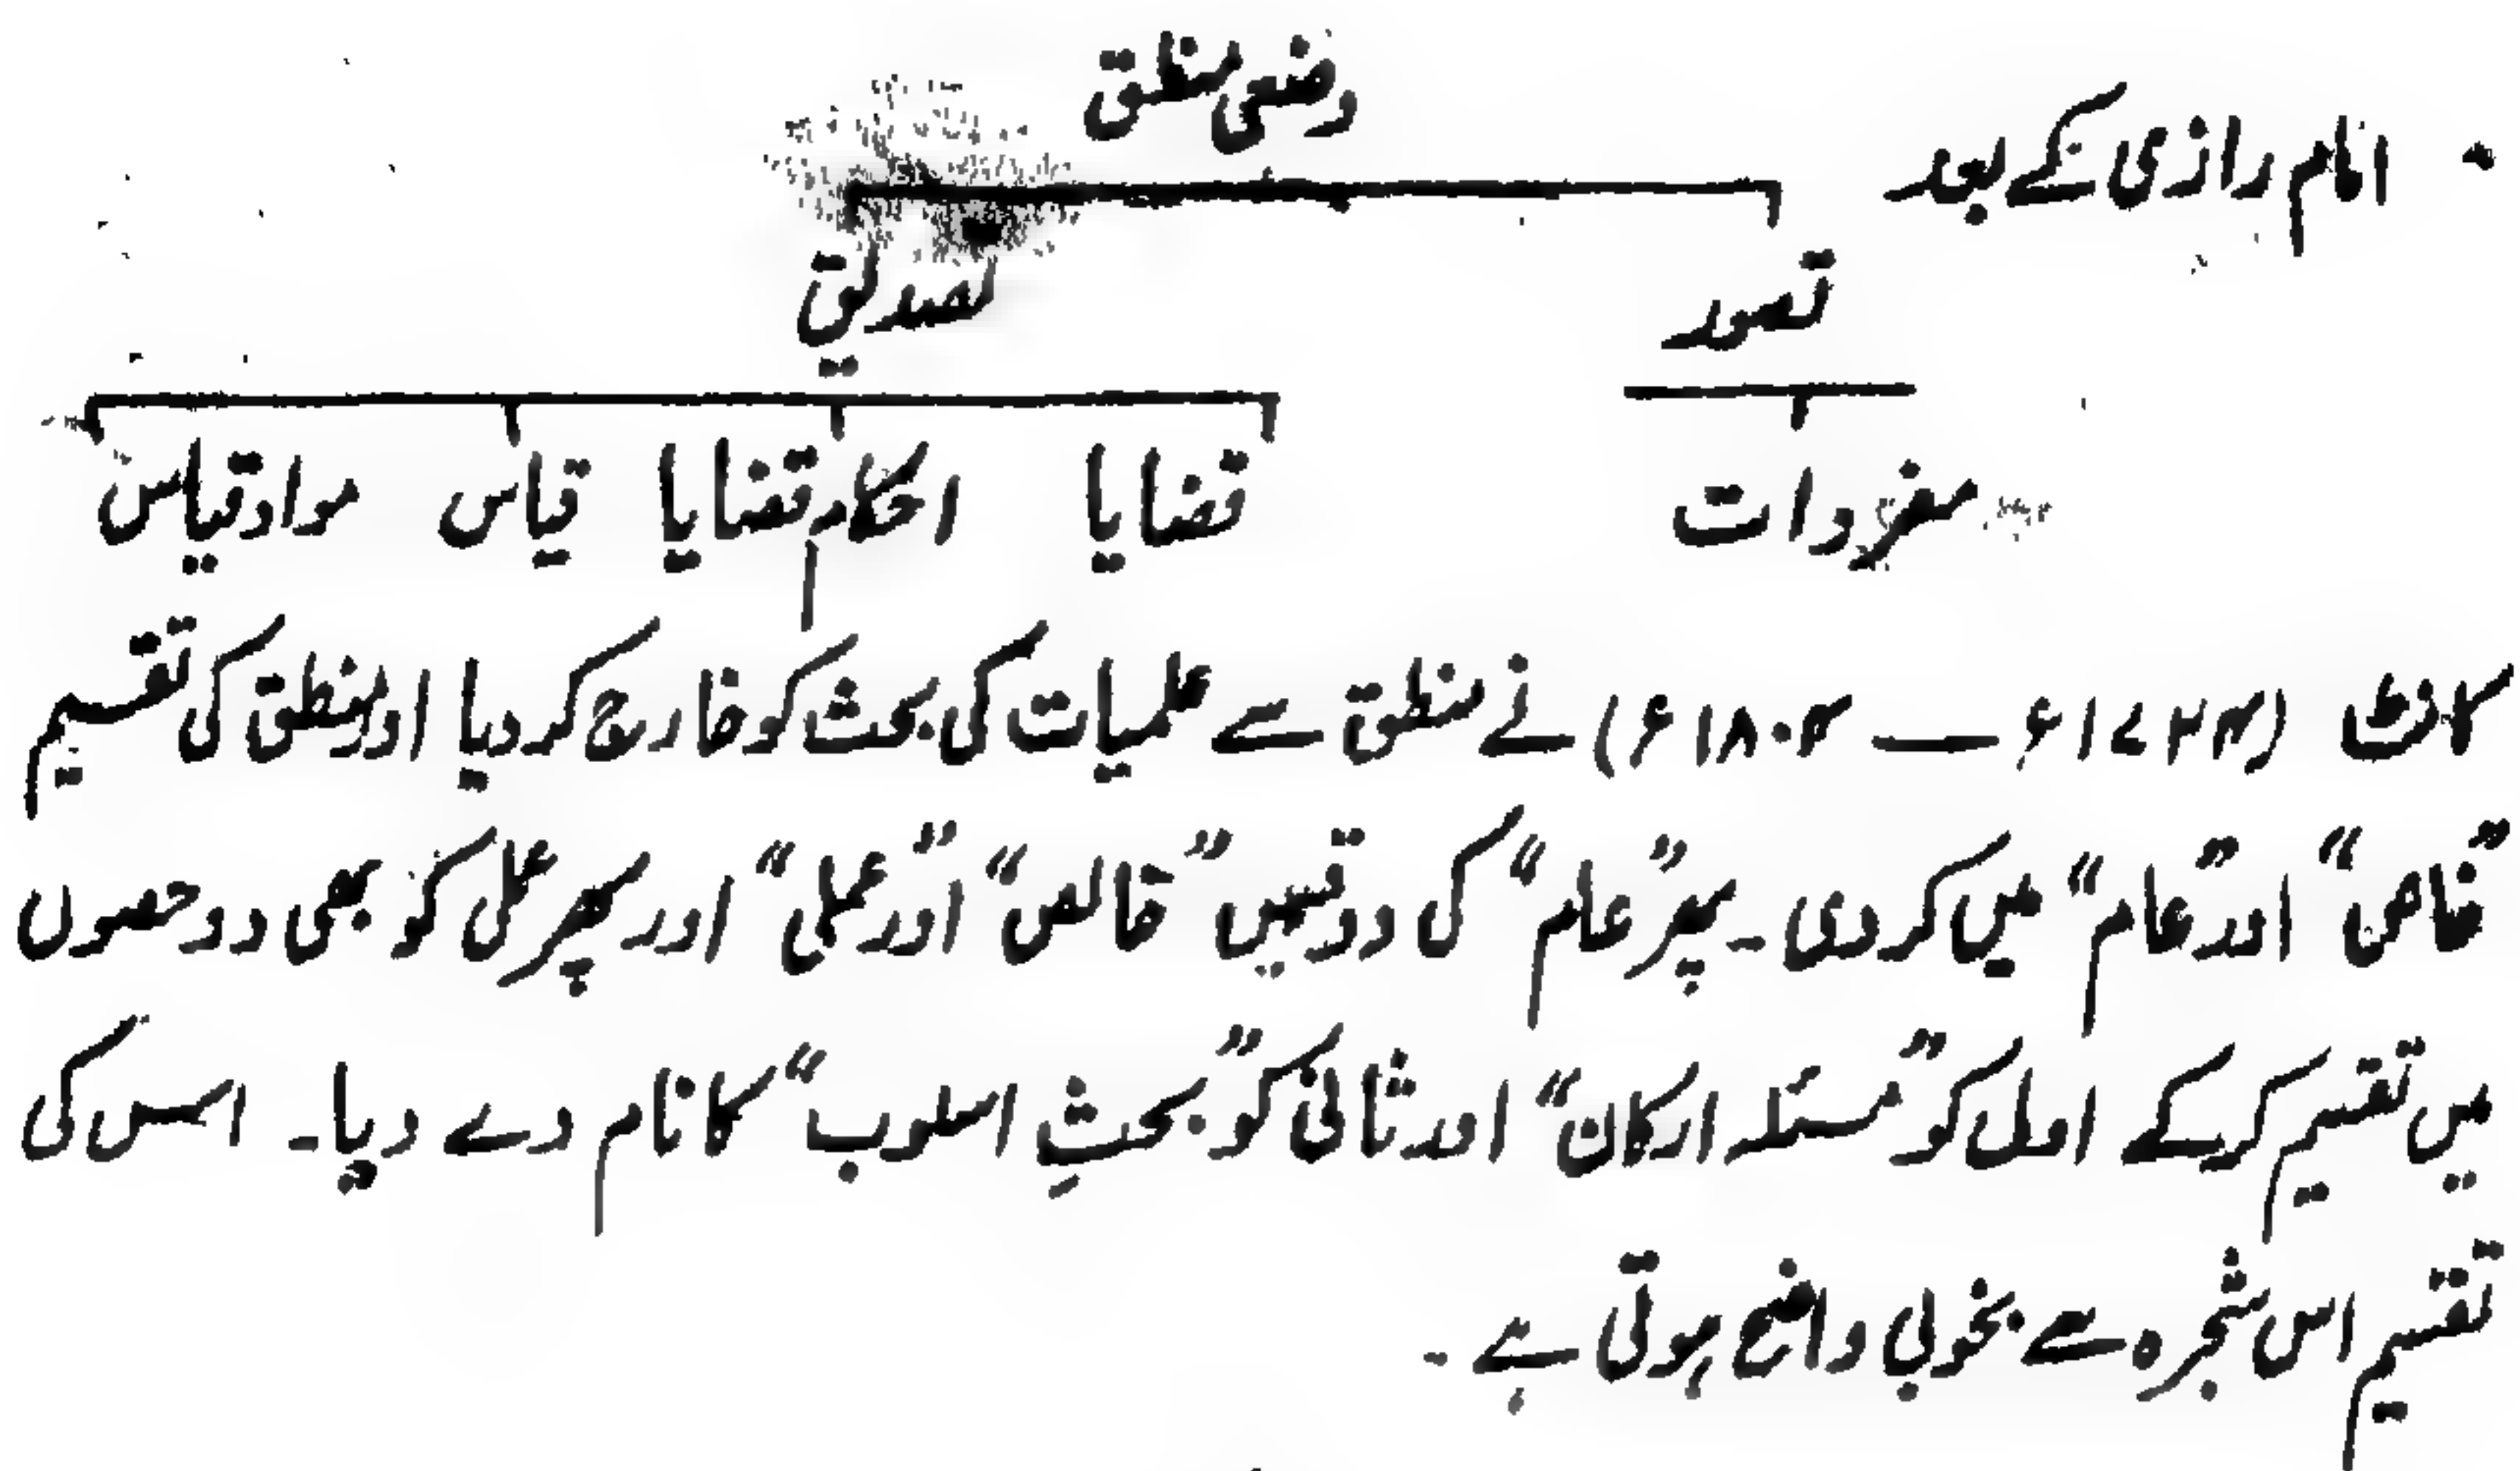 امام رازی کے بعد
وضعی منطق
تصور
تصدیق
مفردات
قضایا
احکام قضایا
قیاس
مواد قیاس
کانٹ (۱۷۲۴ء — ۱۸۰۴ء) نے منطق سے علمیات کی بحث کو خارج کر دیا اور منطق کی تقسیم
”خاص“ اور ”عام“ میں کر دی ۔ پھر ”عام“ کی دو قسمیں ”خالص“ اور ”عملی“ اور پھر عملی کو بھی دو حصوں
میں تقسیم کر کے اول کو ”مسئلہ ارکان“ اور ثانی کو ”بحثِ اسلوب“ کا نام دے دیا ۔ اس کی
تقسیم اس شجرہ سے بخوبی واضح ہوتی ہے ۔